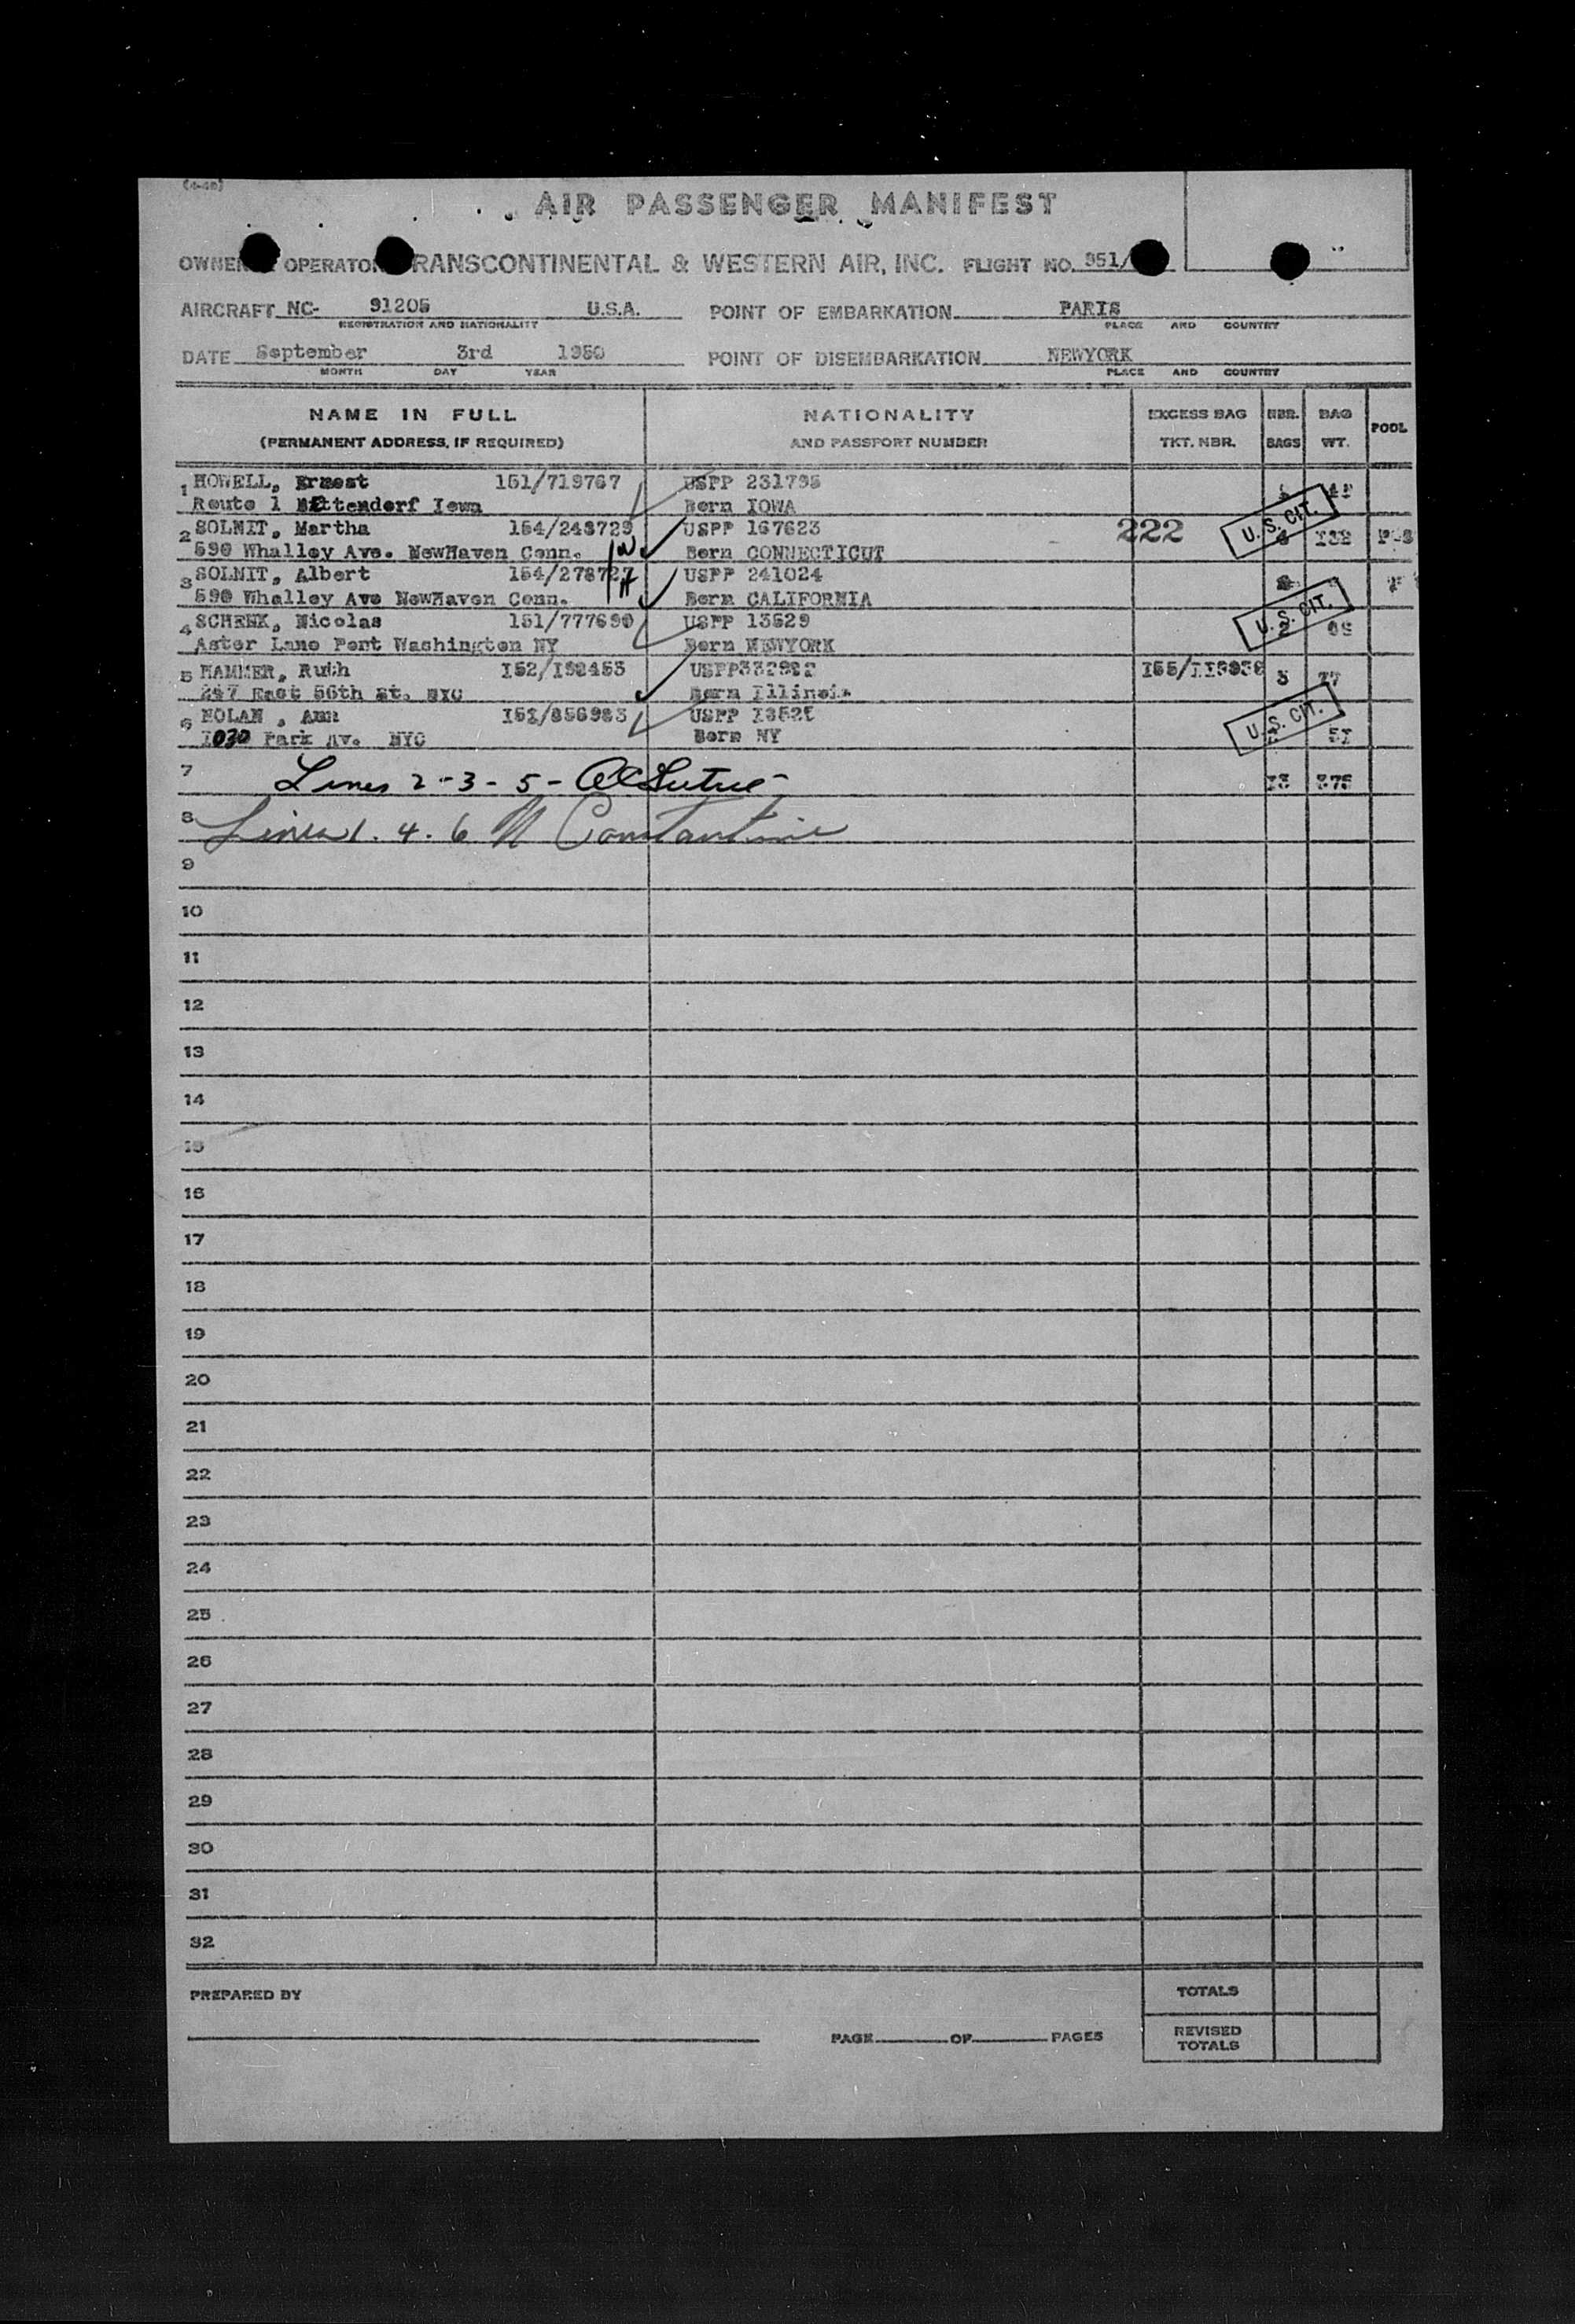 (4-48)
AIR PASSENGER MANIFEST
OWNER OPERATOR TRANSCONTINENTAL & WESTERN AIR, INC. FLIGHT NO. 951/
AIRCRAFT NC- 91205 U.S.A. POINT OF EMBARKATION PARIS
REGISTRATION AND NATIONALITY PLACE AND COUNTRY
DATE September 3rd 1950 POINT OF DISEMBARKATION NEWYORK
MONTH DAY YEAR PLACE AND COUNTRY
NAME IN FULL NATIONALITY EXCESS BAG NBR. BAG POOL
(PERMANENT ADDRESS, IF REQUIRED) AND PASSPORT NUMBER TKT. NBR. BAGS WT.
1 HOWELL, Ernest 151/719767 USPP 231795
Route 1 Bettendorf Iowa Born IOWA
2 SOLNIT, Martha 154/248729 USPP 167623 222 U.S. CIT. 132
590 Whalley Ave. NewHaven Conn. W Born CONNECTICUT
3 SOLNIT, Albert 154/278727 USPP 241024
590 Whalley Ave NewHaven Conn. H Born CALIFORNIA
4 SCHENK, Nicolas 151/777690 USPP 13529 U.S. CIT. 2
Aster Lane Port Washington NY Born NEWYORK
5 HAMMER, Ruth I52/I98453 USPP332992 3 77
247 East 56th St. NYC Born Illinois
6 NOLAN , Ann I51/856983 USPP U.S. CIT. 5I
1030 Park Av. NYC Born NY
7 Lines 2-3-5- I3 375
8 Lines 1. 4. 6 N Constantine
9
10
11
12
13
14
15
16
17
18
19
20
21
22
23
24
25
26
27
28
29
30
31
32
PREPARED BY TOTALS
PAGE OF PAGES REVISED
TOTALS